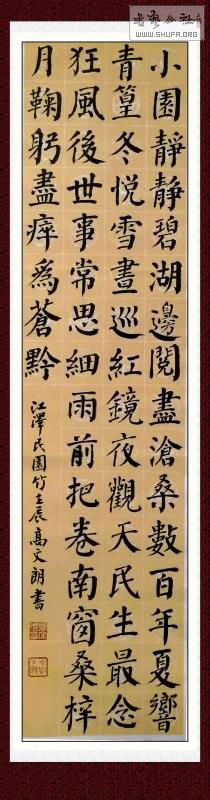 小園靜靜碧湖邊閱盡滄桑數百年夏響
青篁冬悅雪晝巡紅鏡夜觀天民生最念
狂風後世事常思細雨前把卷南窗桑梓
月鞠躬盡瘁爲蒼黔
江澤民園竹壬辰高文朗書
WWW.SHUFA.ORG